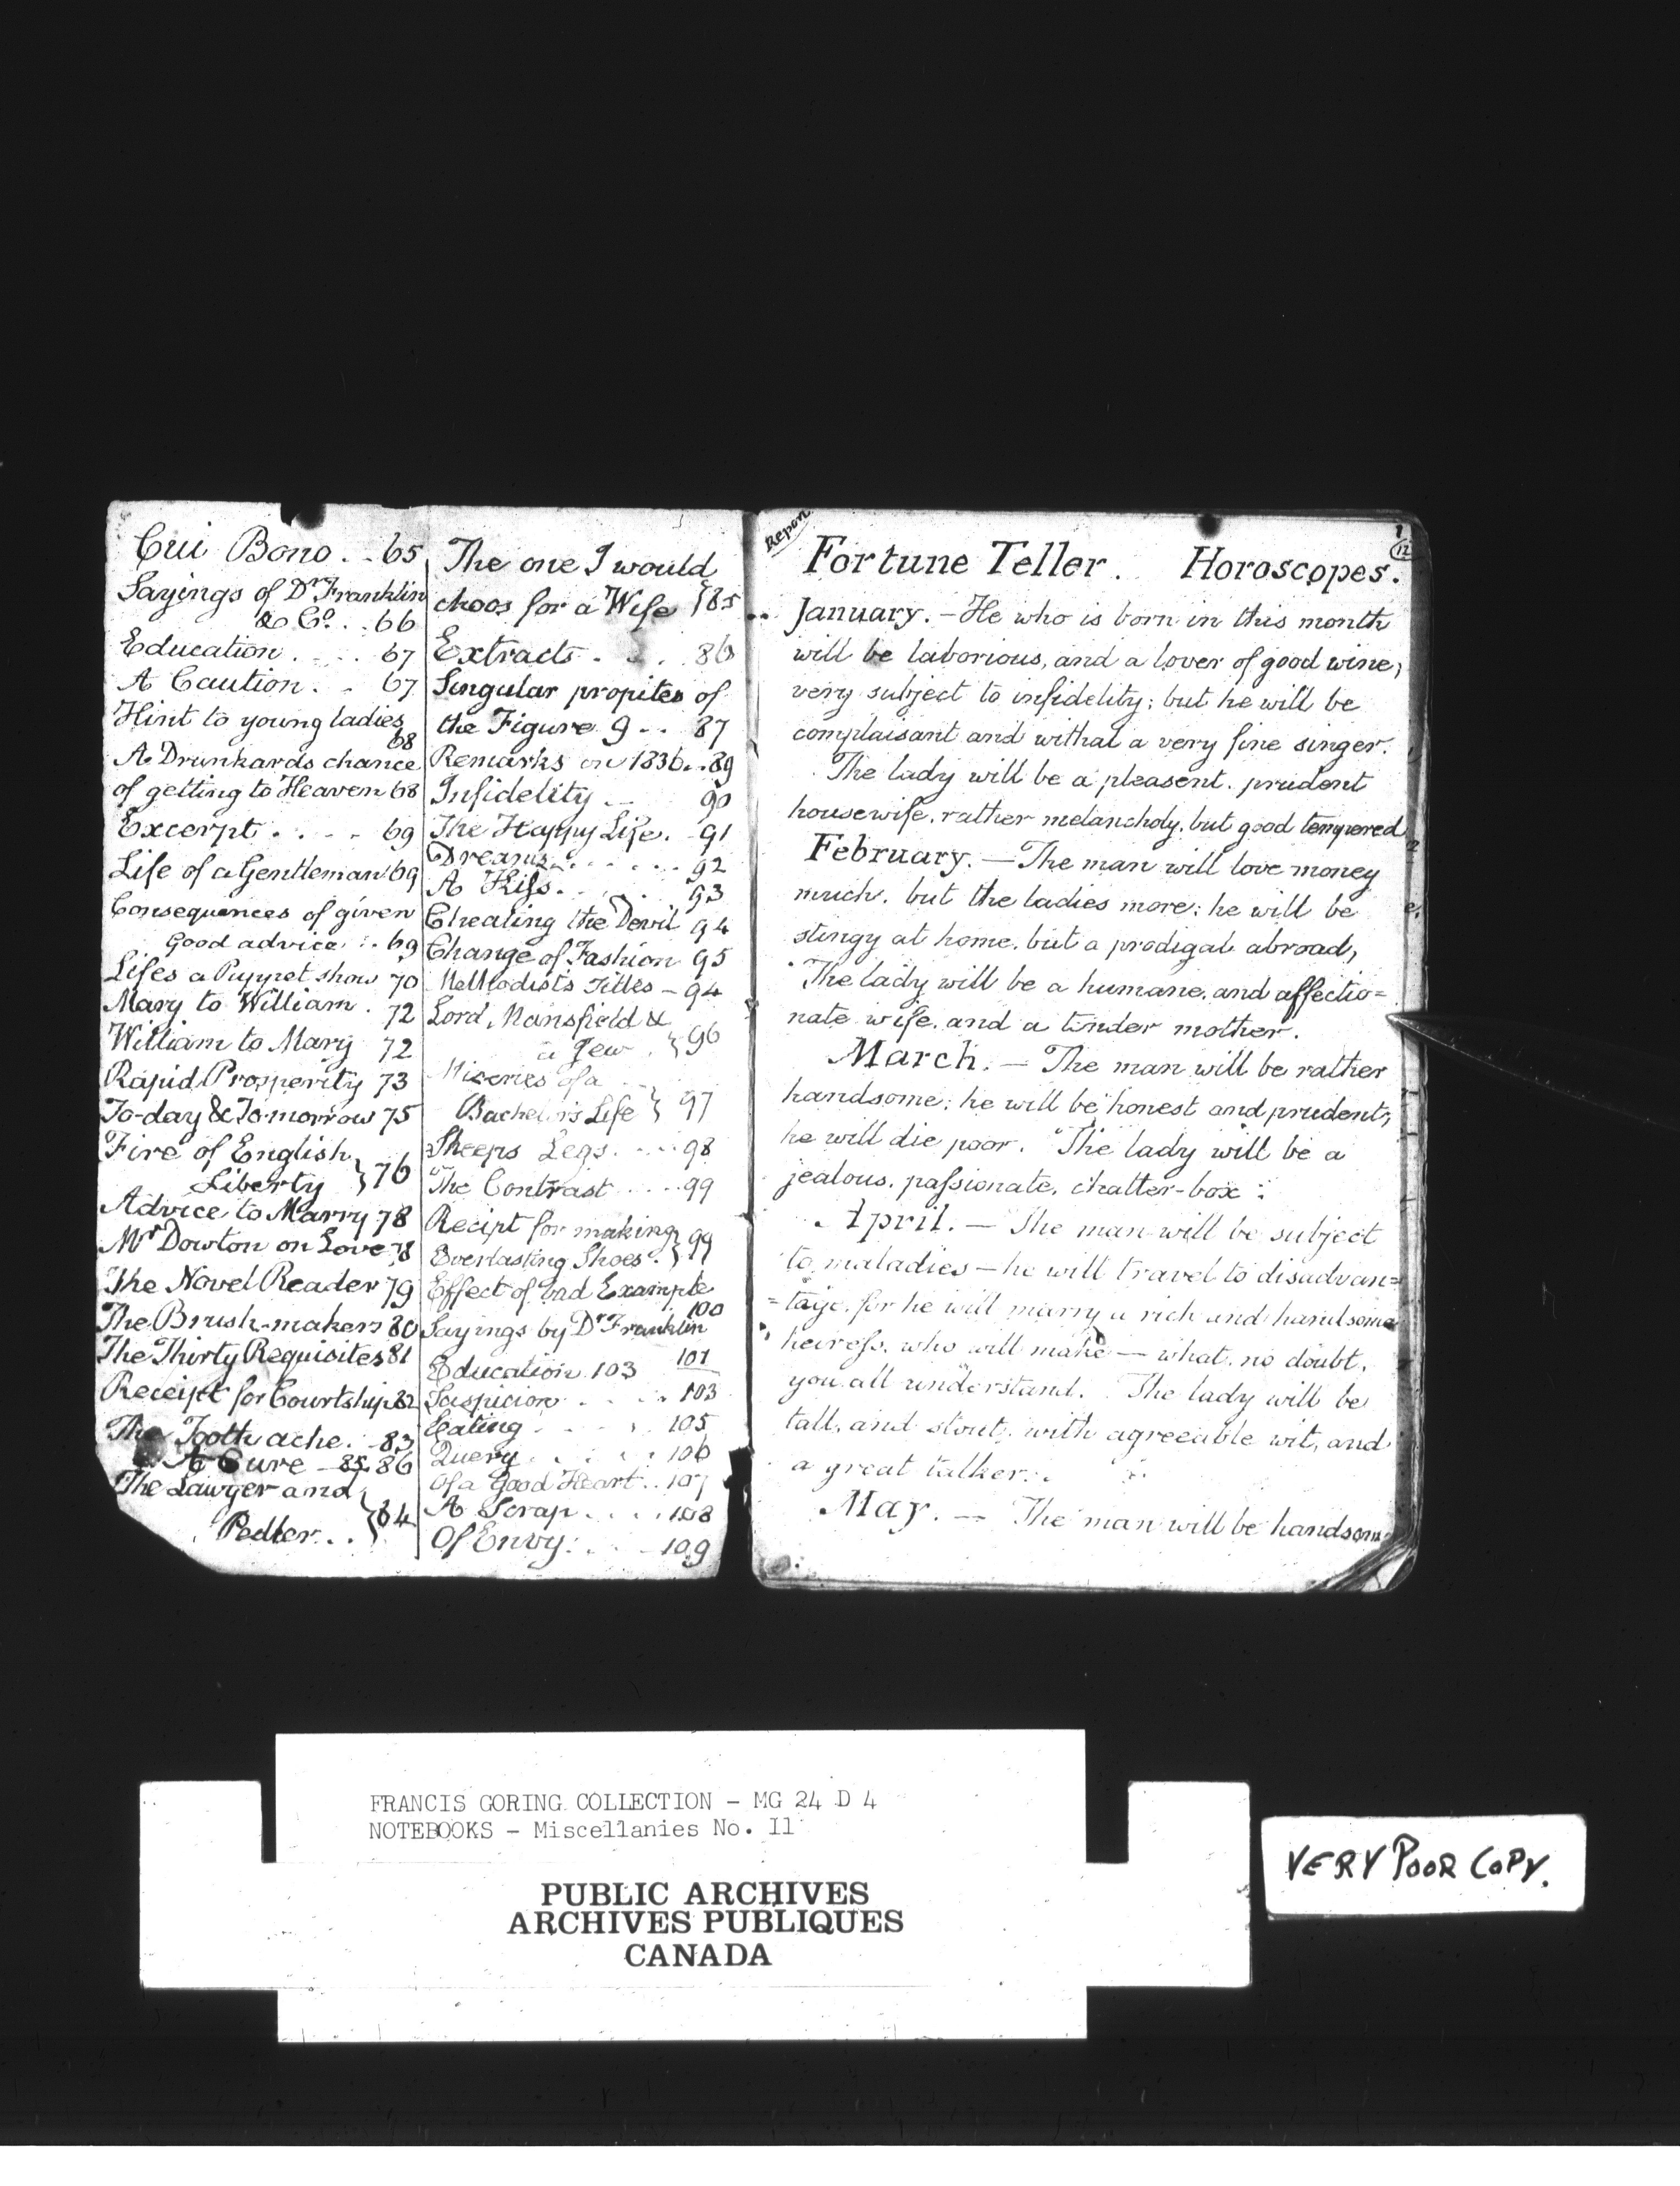 Cui Bono . . 65
Sayings of Dr Franklin
& Co. . . 66
Education . . . . 67
A Caution . . 67
Hint to young ladies
68
A Drunkards chance
of getting to Heaven 68
Excerpt . . . . 69
Life of a Gentleman 69
Consequences of given
Good advice . . 69
Lifes a Puppet show 70
Mary to William . 72
William to Mary 72
Rapid Prosperity 73
To-day & To-morrow 75
Fire of English
Liberty } 76
Advice to Marry 78
Mr Dowton on Love 78
The Novel Reader 79
The Brush-makers 80
The Thirty Requisites 81
Receipt for Courtship 82
The Tooth ache . . 83
A Cure — 85 86
The Lawyer and
Pedler . . } 84
The one I would
choos for a Wife } 85
Extracts . . . . 86
Singular propites of
the Figure 9 . . 87
Remarks on 1836 . . 89
Infidelity . . 90
The Happy Life . - 91
Dreams . . . . . . 92
A Kiss . . . . 93
Cheating the Devil 94
Change of Fashion 95
Methodists Titles - 94
Lord, Mansfield &
a Jew . } 96
Miseries of a
Bachelor's Life } 97
Sheeps Legs . . . . 98
The Contrast . . . . 99
Recipt for making
Everlasting Shoes . } 99
Effect of bad Example
100
Sayings by Dr Franklin
101
Education 103
Suspicion . . . . 103
Eating . . . 105
Query . . . . . 106
Of a Good Heart . . 107
A Scrap . . . . 108
Of Envy . . . - 109
Repon
1
12
Fortune Teller. Horoscopes.
January. - He who is born in this month
will be laborious, and a lover of good wine;
very subject to infidelity; but he will be
complaisant and withal a very fine singer.
The lady will be a pleasent, prudent
housewife, rather melancholy, but good tempered
February. — The man will love money
much, but the ladies more; he will be
stingy at home, but a prodigal abroad,
The lady will be a humane, and affectio=
nate wife, and a tinder mother.
March. — The man will be rather
handsome; he will be honest and prudent,
he will die poor. The lady will be a
jealous, passionate, chatter-box :
April. — The man will be subject
to maladies — he will travel to disadvan=
=tage, for he will marry a rich and handsome
heiress, who will make — what, no doubt,
you all understand. The lady will be
tall, and stout, with agreeable wit, and
a great talker.
May. — The man will be handsom
FRANCIS GORING COLLECTION - MG 24 D 4
NOTEBOOKS - Miscellanies No. 11
PUBLIC ARCHIVES
ARCHIVES PUBLIQUES
CANADA
VERY POOR COPY.